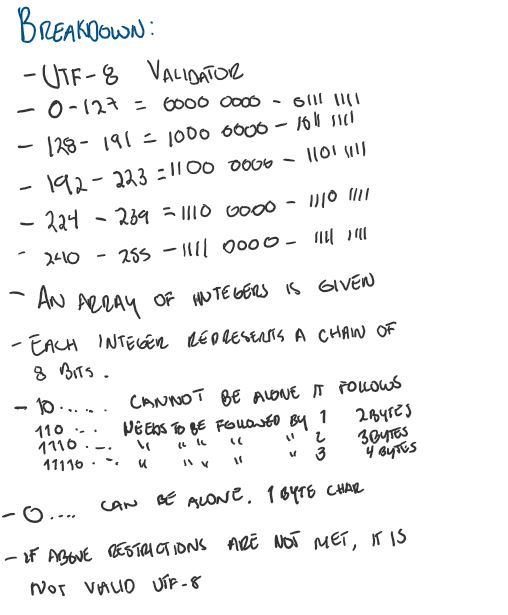 BREAKDOWN:
- UTF-8 VALIDATOR
- 0-127 = 0000 0000 - 0111 1111
- 128 - 191 = 1000 0000 - 1011 1111
- 192 - 223 = 1100 0000 - 1101 1111
- 224 - 239 = 1110 0000 - 1110 1111
- 240 - 255 - 1111 0000 - 1111 1111
- AN ARRAY OF INTEGERS IS GIVEN
- EACH INTEGER REPRESENTS A CHAIN OF
8 BITS.
- 10...... CANNOT BE ALONE IT FOLLOWS
110 ... NEEDS TO BE FOLLOWED BY 1 2 BYTES
1110 ... " " " " " 2 3 BYTES
11110 ... " " " " " 3 4 BYTES
- 0.... CAN BE ALONE. 1 BYTE CHAR
- IF ABOVE RESTRICTIONS ARE NOT MET, IT IS
NOT VALID UTF-8